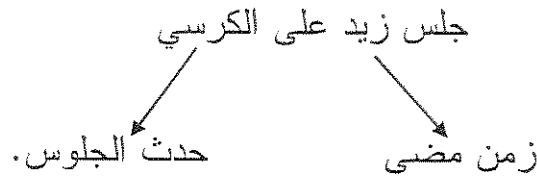 جلس زيد على الكرسي
زمن مضى
حدث الجلوس.